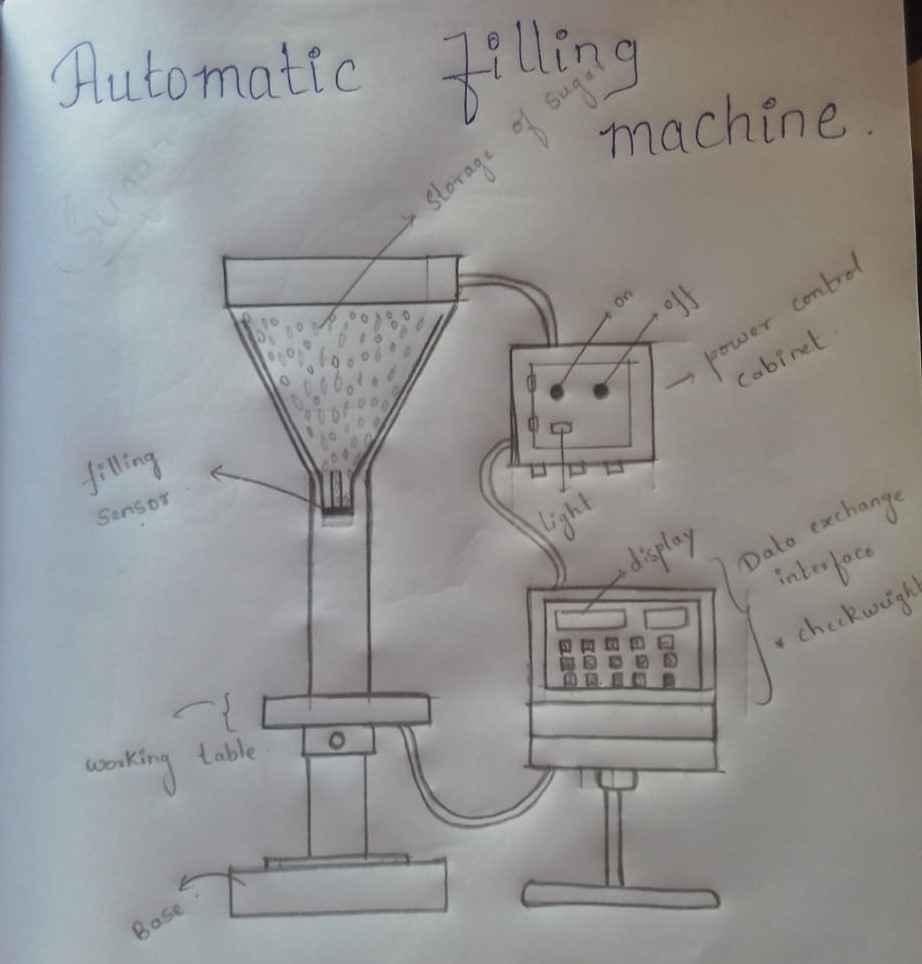 Automatic filling
machine.
Sugar
storage of sugar
on
off
power control
cabinet.
filling
sensor
light
display
Data exchange
interface
* checkweight
working table
Base